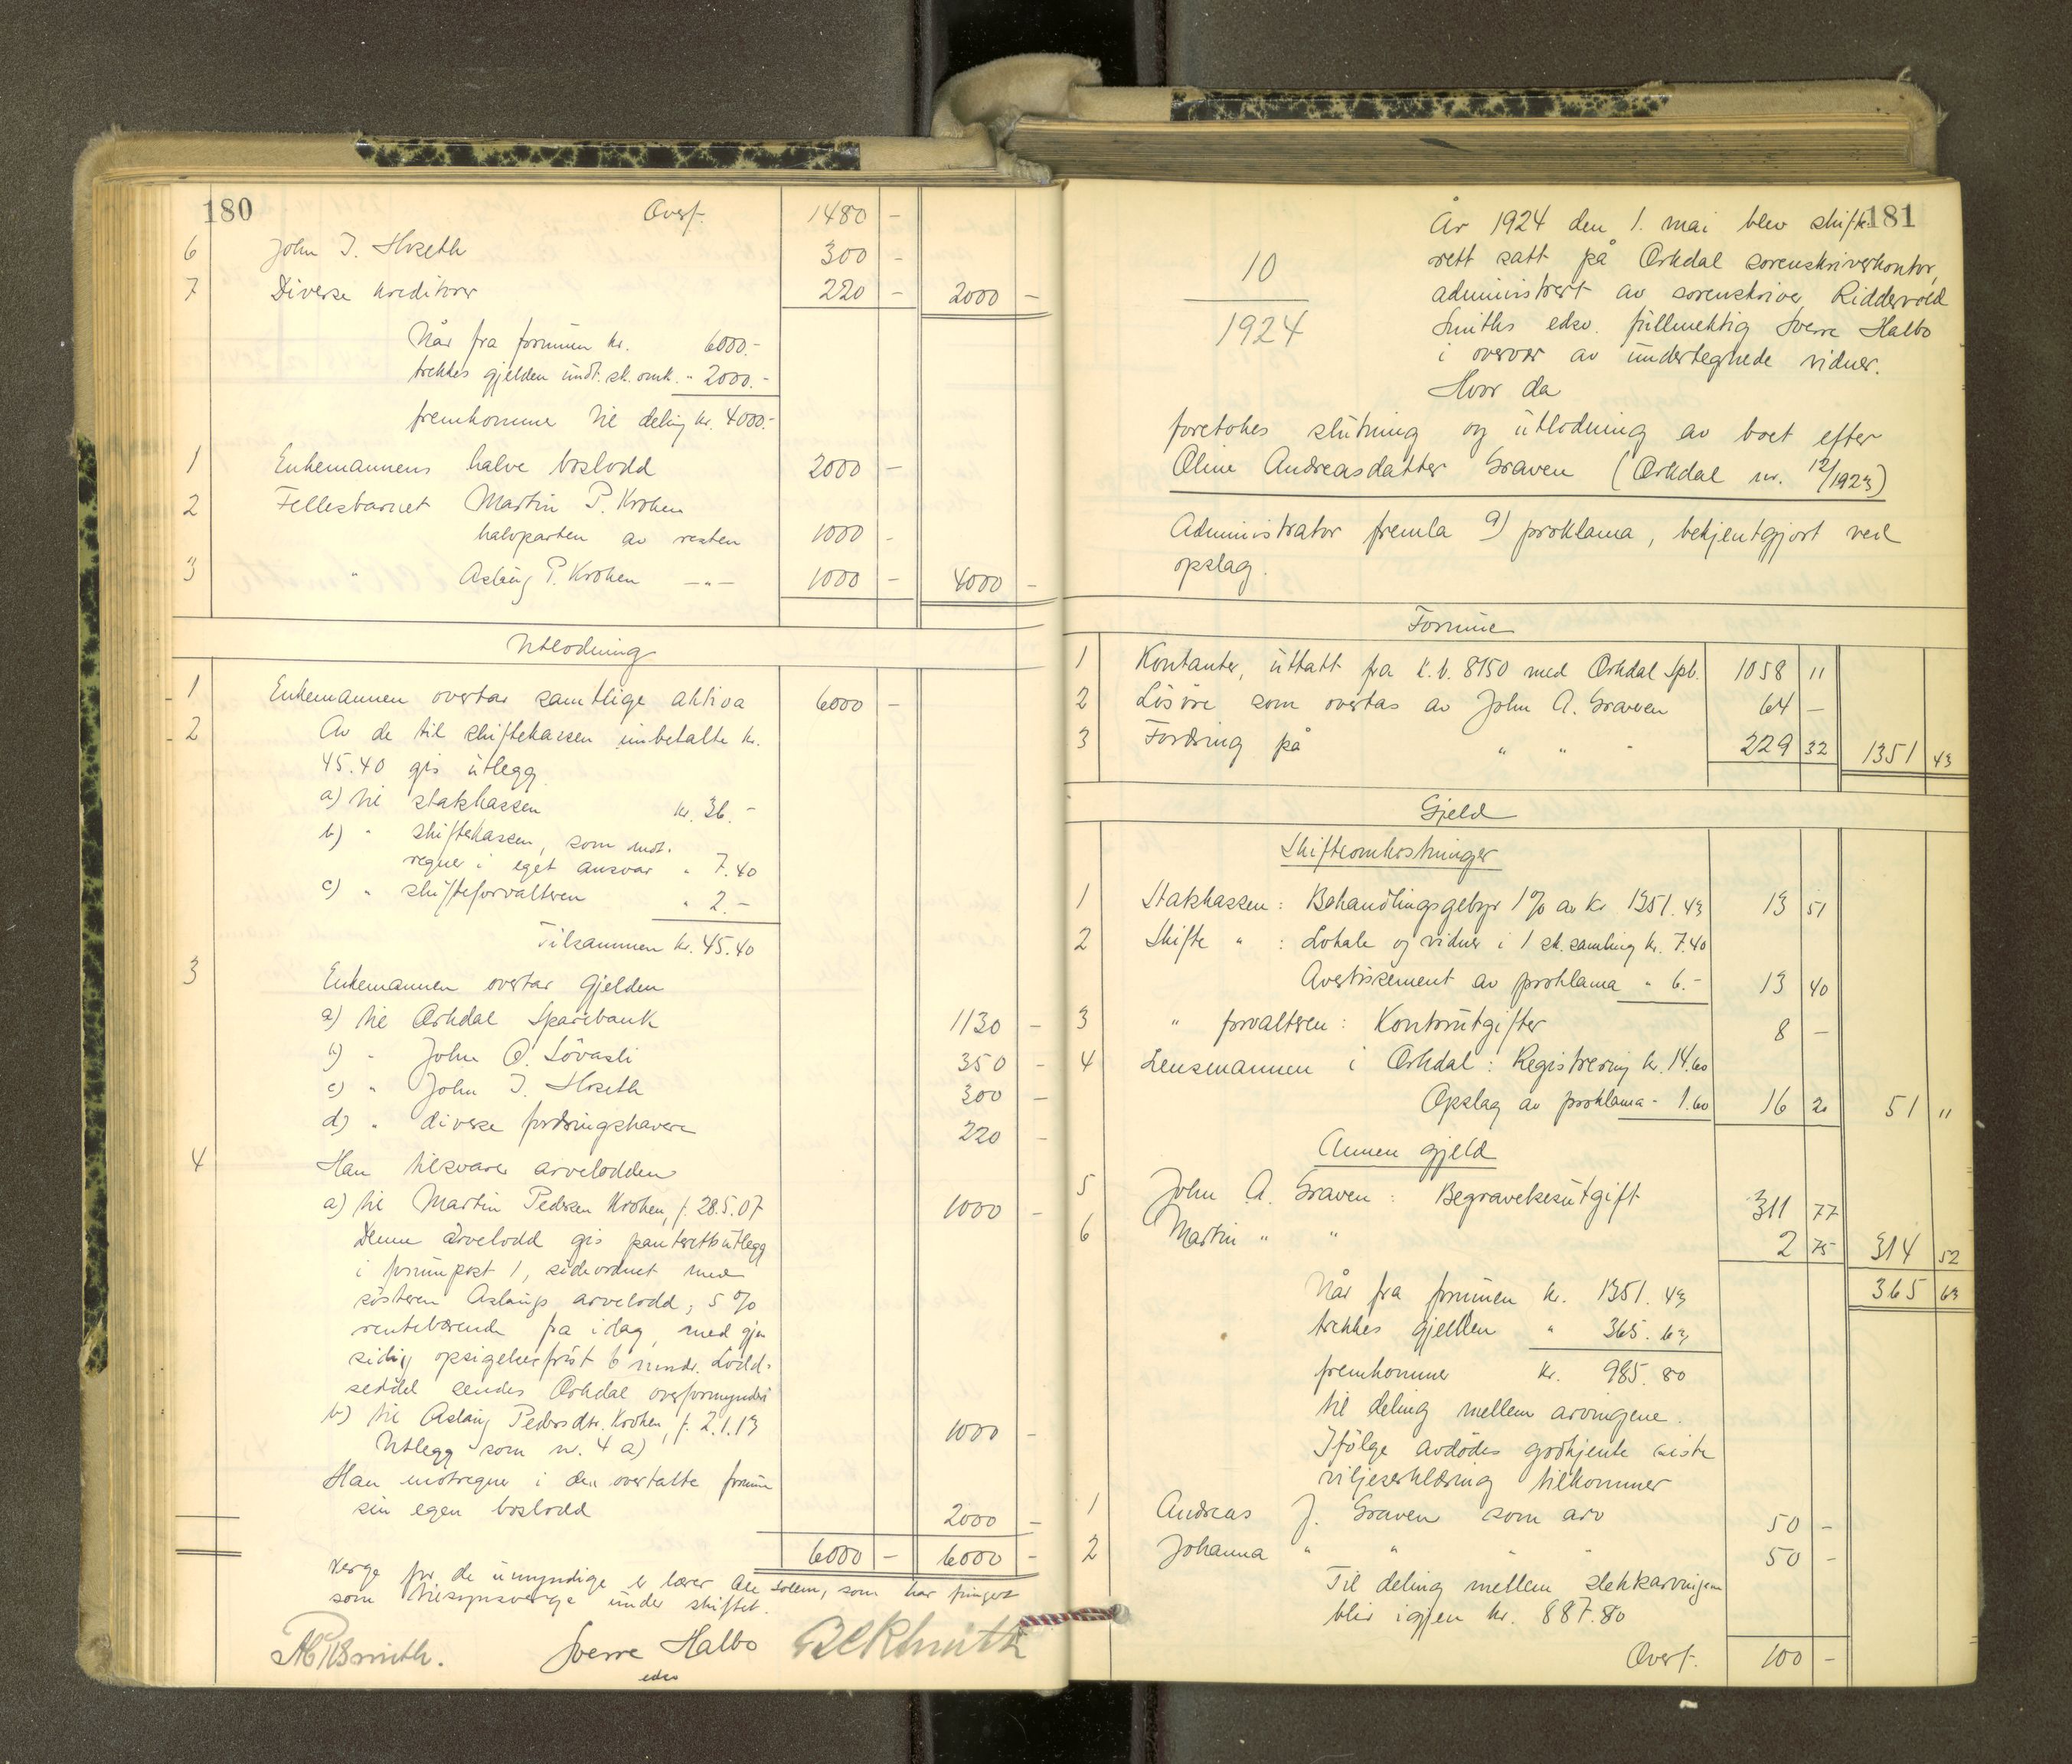 180
Overf. 1480 –
6 John I. Hoseth 300 –
7 Diverse kreditorer 220 – 2000 –
Når fra formuen kr. 6000.–
trekkes gjelden undt. sk. omk. " 2000.–
fremkommer til deling kr. 4000.–
1 Enkemannens halve boslodd 2000 –
2 Fellesbarnet Martin P. Krohen
halvparten av resten 1000 –
3 " Aslaug P. Krohen –"– 1000 – 4000 –
Utlodning
1 Enkemannen overtar samtlige aktiva 6000 –
2 Av de til skiftekassen innbetalte kr.
45.40 gis utlegg
a) til statskassen kr. 36.–
b) " skiftekassen, som mot-
regner i eget ansvar " 7.40
c) " skifteforvalteren " 2.–
Tilsammen kr. 45.40
3 Enkemannen overtar gjelden
a) til Orkdal Sparebank 1130 –
b) " John O. Lövasli 350 –
c) " John I. Hoseth 300 –
d) " diverse fordringshavere 220 –
4 Han tilsvarer arvelodden
a) til Martin Pedersen Krohen, f. 28.5.07 1000 –
Denne arvelodd gis panterettsutlegg
i formuepost 1, sideordnet med
søsteren Aslaugs arvelodd, 5 %
rentebærende fra idag, med gjen
sidig opsigelsesfrist 6 mndr. Lodd-
seddel sendes Orkdal overformynderi
b) til Aslaug Pedersdtr. Krohen, f. 2.1.13 1000 –
Utlegg som nr. 4 a)
Han motregner i den overtatte formue
sin egen boslodd 2000 –
6000 – 6000 –
Verge for de umyndige er lærer Ole Solem, som har fungert
som tilsynsverge under skiftet.
Sverre Halbo
edsv
181
År 1924 den 1. mai blev skifte-
rett satt på Orkdal sorenskriverkontor,
administrert av sorenskriver Riddervold
Smiths edsv. fullmektig Sverre Halbo
i overvær av undertegnede vidner.
Hvor da
10
1924
foretokes slutning og utlodning av boet efter
Oline Andreasdatter Graven (Orkdal nr. 12/1923)
Administrator fremla a) proklama, bekjentgjort ved
opslag.
Formue
1 Kontanter, uttatt fra k.b. 8150 med Orkdal Spb. 1058 11
2 Lösöre som overtas av John A. Graven 64 –
3 Fordring på " " " 229 32 1351 43
Gjeld
Skifteomkostninger
1 Statskassen: Behandlingsgebyr 1% av kr 1351.43 13 51
2 Skifte " : Lokale og vidner i 1 sk. samling kr. 7.40
Avertissement av proklama " 6.– 13 40
3 " forvalteren: Kontorutgifter 8 –
4 Lensmannen i Orkdal: Registrering kr. 14.60
Opslag av proklama " 1.60 16 20 51 11
Annen gjeld
5 John A. Graven: Begravelsesutgift 311 77
6 Martin " " 2 75 314 52
365 63
Når fra formuen kr. 1351.43
trekkes gjelden " 365.63
fremkommer kr. 985.80
til deling mellem arvingene.
Ifölge avdödes godkjente siste
viljeserklæring tilkommer
1 Andreas J. Graven som arv 50 –
2 Johanna " " " " 50 –
Til deling mellem slektsarvingene
blir igjen kr. 887.80
Overf. 100 –